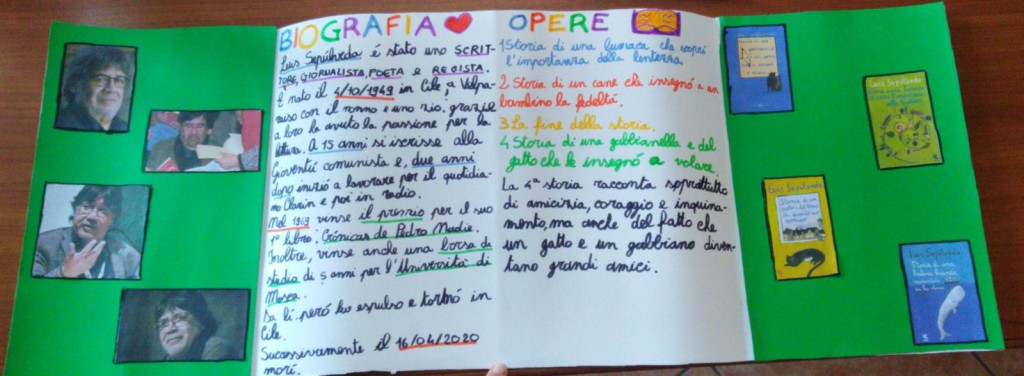 BIOGRAFIA
Luis Sepúlveda é stato uno SCRIT-
TORE, GIORNALISTA, POETA e REGISTA.
É nato il 4/10/1949 in Cile, a Valpa-
raiso con il nonno e uno zio. grazie
a loro ha avuto la passione per la
lettura. A 15 anni si iscrisse alla
Gioventú comunista e, due anni
dopo inizió a lavorare per il quotidia-
no Clarin e poi in radio.
Nel 1969 vinse il premio per il suo
1° libro: Crónicas de Pedro Nadie.
Inoltre, vinse anche una borsa di
studio di 5 anni per l'Universitá di
Mosca.
Da lí peró fu espulso e tornó in
Cile.
Successivamente il 16/04/2020
morí.
OPERE
1 Storia di una lumaca che scoprí
l'importanza della lentezza.
2 Storia di un cane che insegnó a un
bambino la fedeltá.
3 La fine della storia.
4 Storia di una gabbianella e del
gatto che le insegnó a volare.
La 4ª storia racconta soprattutto
di amicizia, coraggio e inquina-
mento, ma anche del fatto che
un gatto e un gabbiano diven-
tano grandi amici.
Luis Sepúlveda
Luis Sepúlveda
Luis Sepúlveda
Storia di una
balena bianca